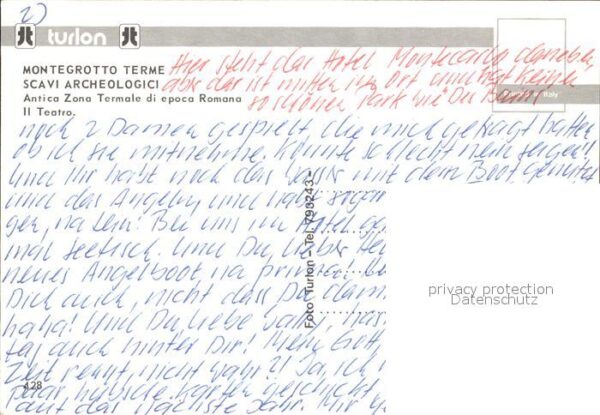 2)
turlon
MONTEGROTTO TERME
SCAVI ARCHEOLOGICI
Antica Zona Termale di epoca Romana
Il Teatro.
Hier steht das Hotel Montecarlo daneben,
aber das ist mitten im Ort und hat keinen
so schönen Park wie Des Bains
Italy
noch 2 Damen gespielt, die mich gefragt hatten
ob ich sie mitnehme. Konnte schlecht nein sagen!!
Und Ihr habt noch das mit dem Boot genutzt
und das Angeln und habt sogar
ger, na fein! Bei uns im Hotel
mal Seefisch. Und Du, lieber
neues Angelboot na prima!
Dich auch, nicht dass Du
haha! Und Du, liebe
tag auch hinter Dir! Mein Gott
Zeit rennt, nicht wahr?! Ja, ich
paar hübsche Karten geschickt
auf das nächste Jahr. Wir
Foto Turlon - Tel. 793243
428
privacy protection
Datenschutz